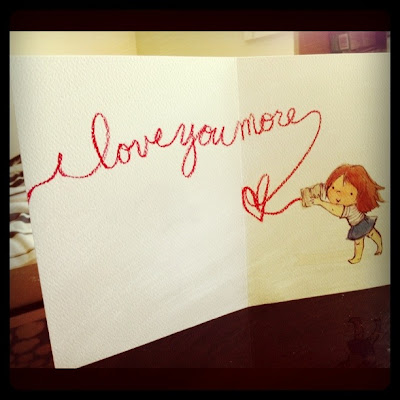 i love you more